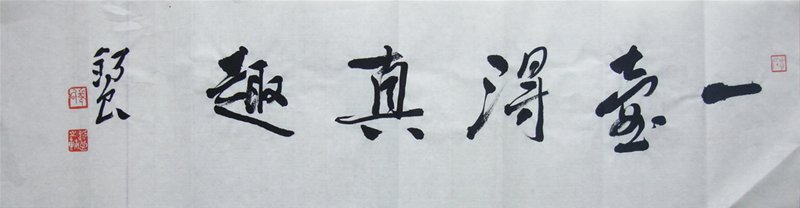 一壶得真趣